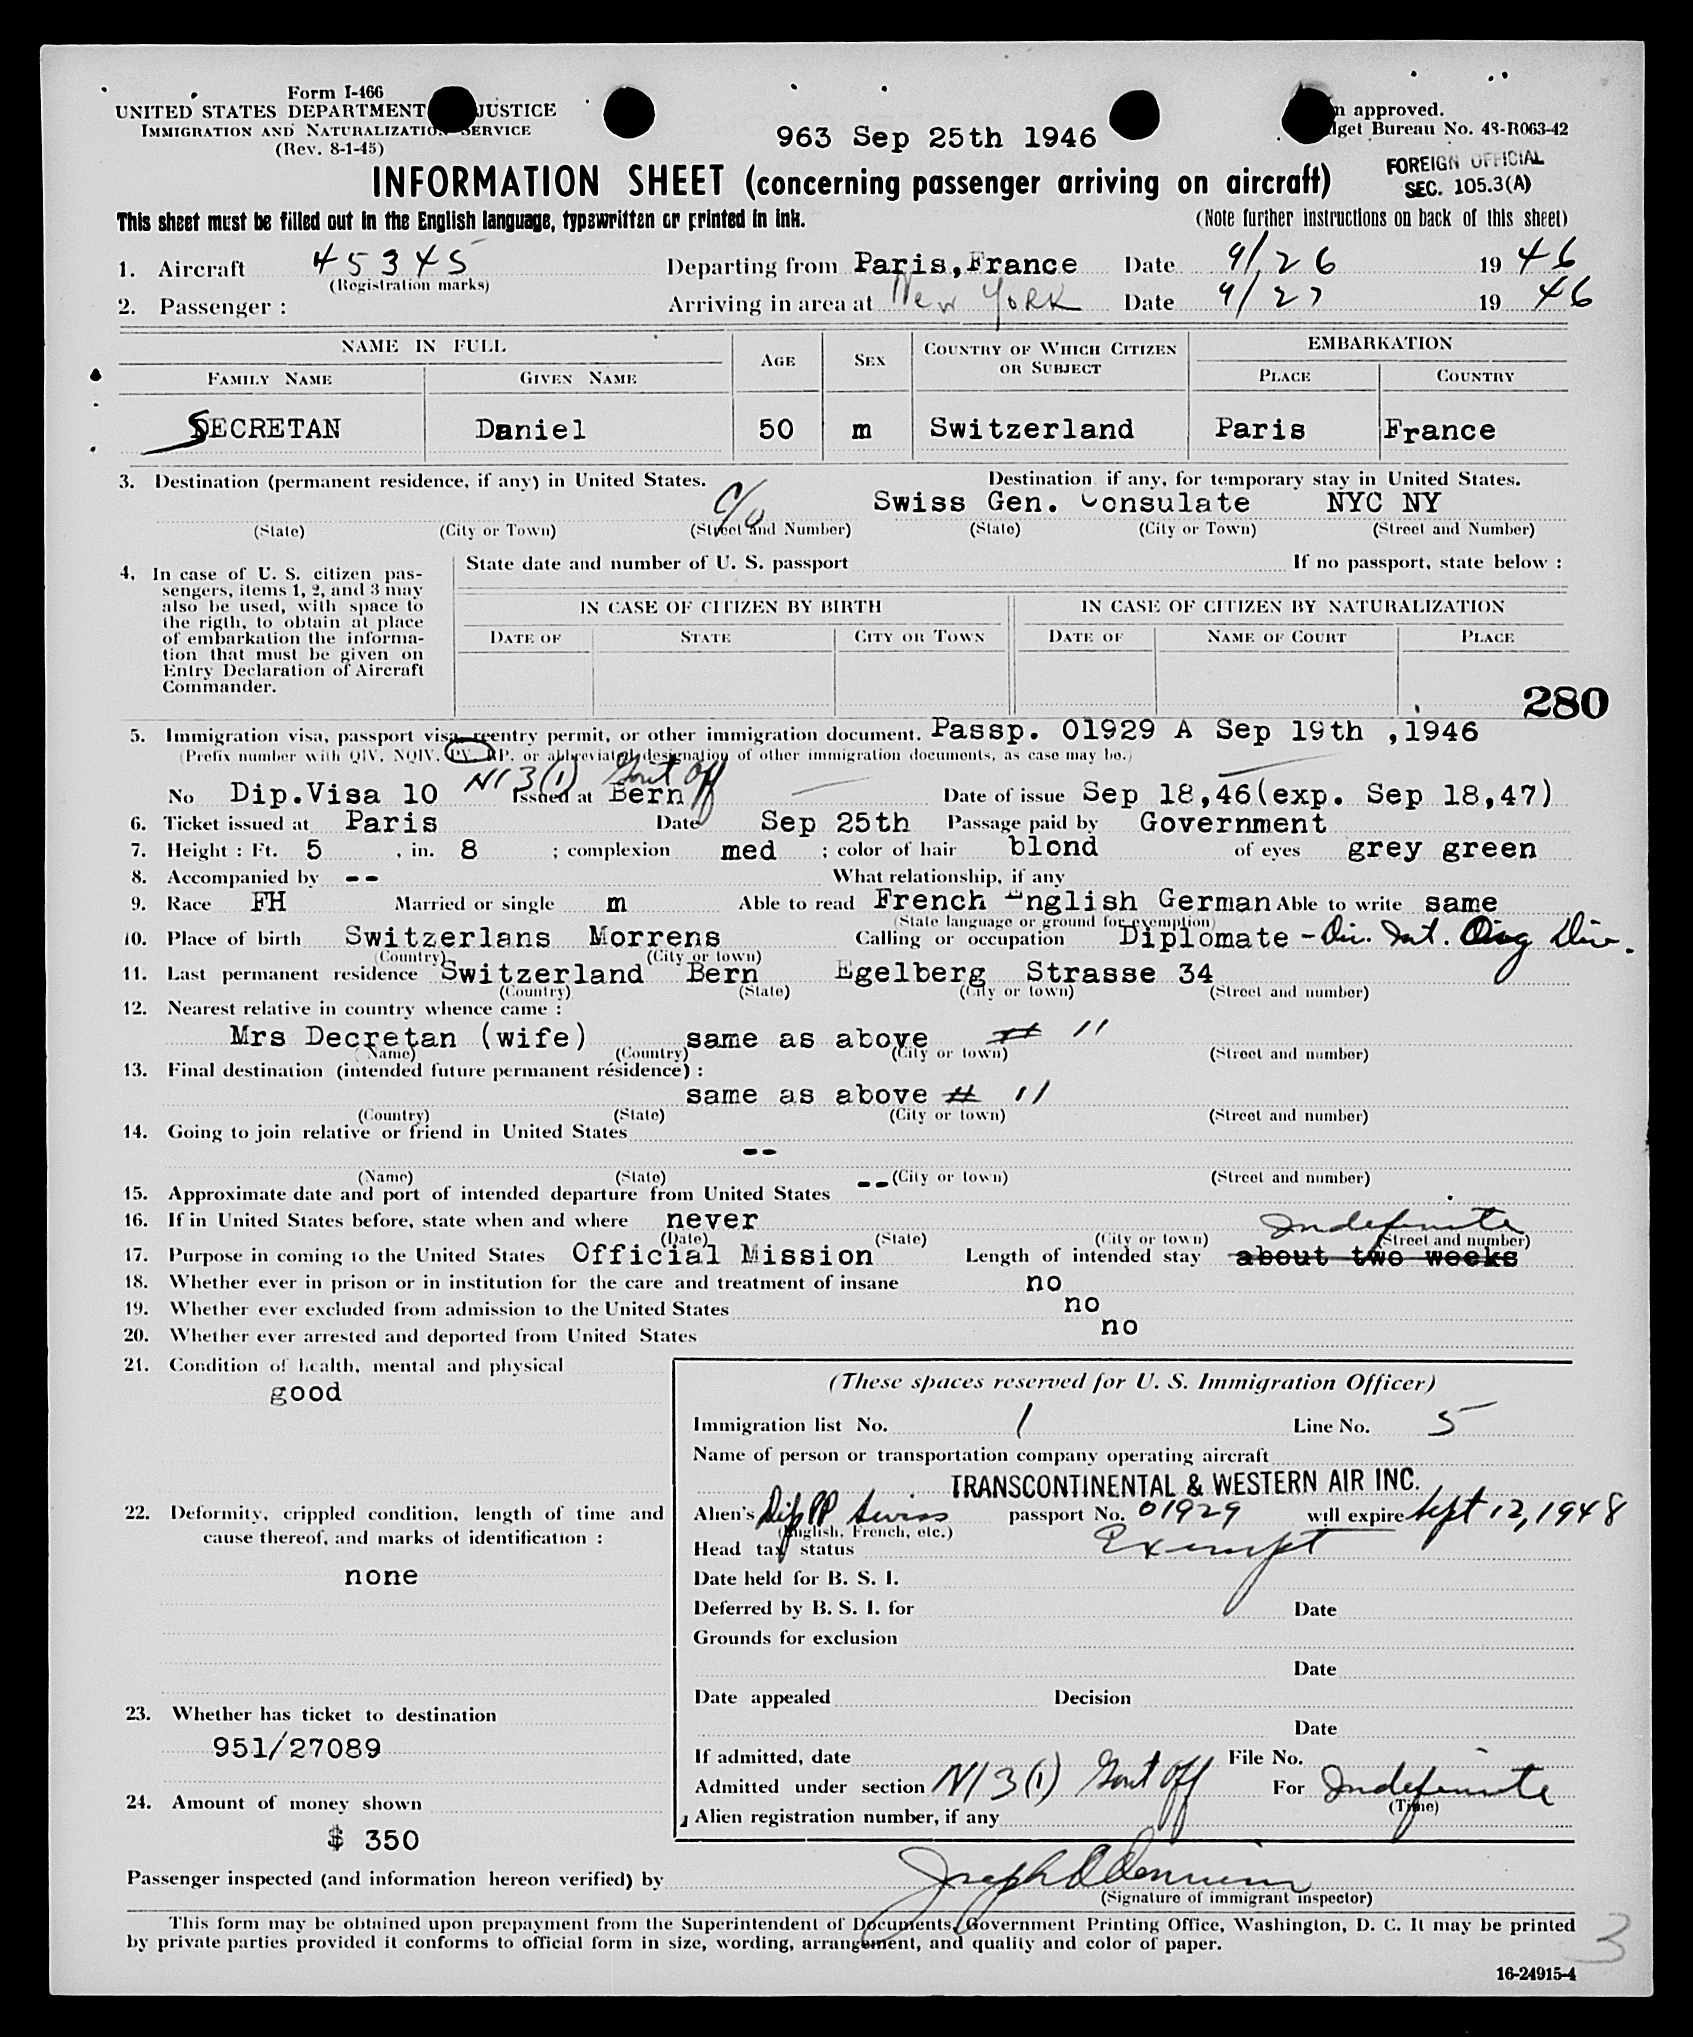 Form I-466
UNITED STATES DEPARTMENT JUSTICE
IMMIGRATION AND NATURALIZATION SERVICE
(Rev. 8-1-45)
963 Sep 25th 1946
approved.
Bureau No. 43-R063-42
FOREIGN OFFICIAL
SEC. 105.3(A)
INFORMATION SHEET (concerning passenger arriving on aircraft)
This sheet must be filled out in the English language, typewritten or printed in ink. (Note further instructions on back of this sheet)
1. Aircraft 45345 Departing from Paris,France Date 9/26 1946
(Registration marks)
2. Passenger : Arriving in area at New York Date 9/27 1946
NAME IN FULL AGE SEX COUNTRY OF WHICH CITIZEN OR SUBJECT EMBARKATION
FAMILY NAME GIVEN NAME PLACE COUNTRY
SECRETAN Daniel 50 m Switzerland Paris France
3. Destination (permanent residence, if any) in United States. Destination if any, for temporary stay in United States.
c/o Swiss Gen. Consulate NYC NY
(State) (City or Town) (Street and Number) (State) (City or Town) (Street and Number)
4. In case of U. S. citizen pas-
sengers, items 1, 2, and 3 may
also be used, with space to
the rigth, to obtain at place
of embarkation the informa-
tion that must be given on
Entry Declaration of Aircraft
Commander.
State date and number of U. S. passport If no passport, state below :
IN CASE OF CITIZEN BY BIRTH IN CASE OF CITIZEN BY NATURALIZATION
DATE OF STATE CITY OR TOWN DATE OF NAME OF COURT PLACE
280
5. Immigration visa, passport visa, reentry permit, or other immigration document. Passp. 01929 A Sep 19th ,1946
(Prefix number with QIV, NQIV, PV, RP, or abbreviated designation of other immigration documents, as case may be.)
N/ 3(1) Govt Off
No Dip.Visa 10 Issued at Bern Date of issue Sep 18,46(exp. Sep 18,47)
6. Ticket issued at Paris Date Sep 25th Passage paid by Government
7. Height : Ft. 5 , in. 8 ; complexion med ; color of hair blond of eyes grey green
8. Accompanied by -- What relationship, if any
9. Race FH Married or single m Able to read French English German Able to write same
(State language or ground for exemption)
10. Place of birth Switzerlans Morrens Calling or occupation Diplomate - Div. Int. Org Div.
(Country) (City or town)
11. Last permanent residence Switzerland Bern Egelberg Strasse 34
(Country) (State) (City or town) (Street and number)
12. Nearest relative in country whence came :
Mrs Decretan (wife) same as above # 11
(Name) (Country) (City or town) (Street and number)
13. Final destination (intended future permanent résidence) :
same as above # 11
(Country) (State) (City or town) (Street and number)
14. Going to join relative or friend in United States
--
(Name) (State) (City or town) (Street and number)
15. Approximate date and port of intended departure from United States --
16. If in United States before, state when and where never
(Date) (State) (City or town) (Street and number)
Indefinite
17. Purpose in coming to the United States Official Mission Length of intended stay about two weeks
18. Whether ever in prison or in institution for the care and treatment of insane no
19. Whether ever excluded from admission to the United States no
20. Whether ever arrested and deported from United States no
21. Condition of health, mental and physical
good
22. Deformity, crippled condition, length of time and
cause thereof, and marks of identification :
none
23. Whether has ticket to destination
951/27089
24. Amount of money shown
$ 350
(These spaces reserved for U. S. Immigration Officer)
Immigration list No. 1 Line No. 5
Name of person or transportation company operating aircraft
TRANSCONTINENTAL & WESTERN AIR INC.
Alien's Dip PP Swiss passport No. 01929 will expire Sept 12, 1948
(English, French, etc.)
Head tax status Exempt
Date held for B. S. I.
Deferred by B. S. I. for Date
Grounds for exclusion
Date
Date appealed Decision
Date
If admitted, date File No.
Admitted under section N/ 3(1) Govt Off For Indefinite
(Time)
Alien registration number, if any
Passenger inspected (and information hereon verified) by Joseph
(Signature of immigrant inspector)
This form may be obtained upon prepayment from the Superintendent of Documents, Government Printing Office, Washington, D. C. It may be printed
by private parties provided it conforms to official form in size, wording, arrangement, and quality and color of paper.
3
16-24915-4